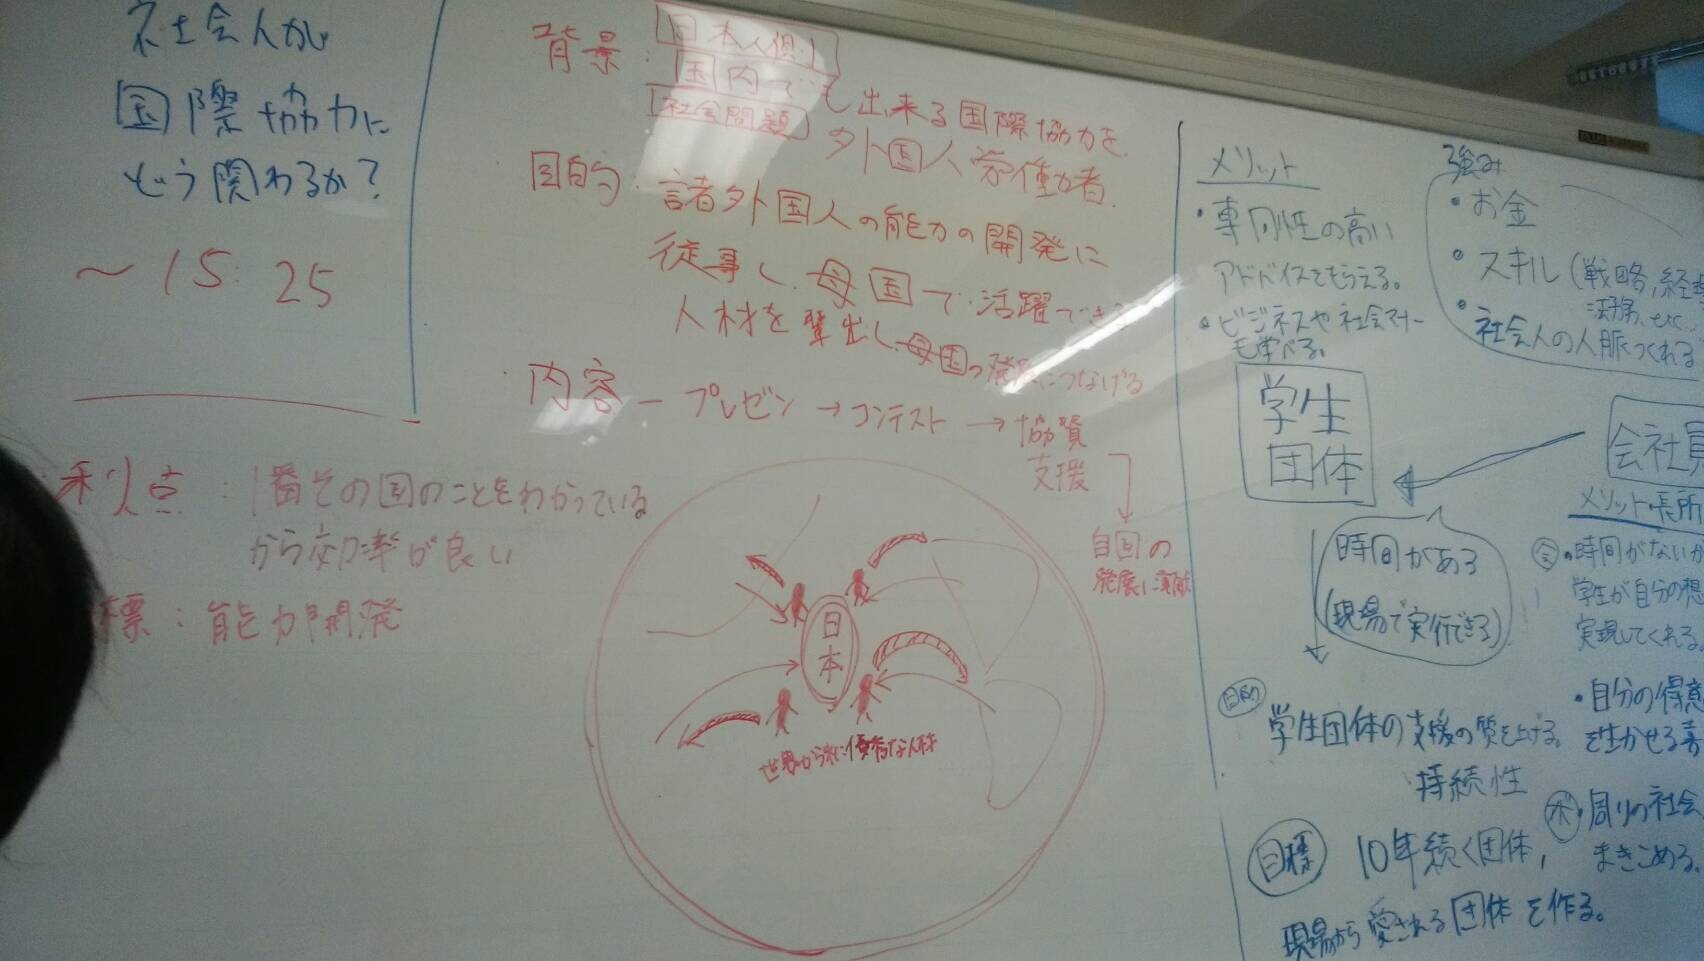 社会人が
国際協力に
どう関わるか?
〜15:25
背景:日本人側
国内でも出来る国際協力を
社会問題 外国人労働者
目的:諸外国人の能力の開発に
従事し、母国で活躍でき
人材を輩出し、母国の発展につなげる
内容ープレゼン→コンテスト→協賛
支援
自国の
発展に貢献
利点:1番その国のことをわかっている
から効率が良い
標:能力開発
日本
世界から来た優秀な人材
メリット
・専門性の高い
アドバイスをもらえる。
・ビジネスや社会マナー
も学べる。
強み
・お金
・スキル(戦略,経
etc
・社会人の人脈つくれる
学生
団体
会社員
時間がある
(現場で実行できる)
メリット・長所
・時間がないが
学生が自分の想
実現してくれる。
・自分の得意
を生かせる
・周りの社会
まきこめる。
目的
学生団体の支援の質を上げる。
持続性
目標 10年続く団体,
現場から愛される団体を作る。